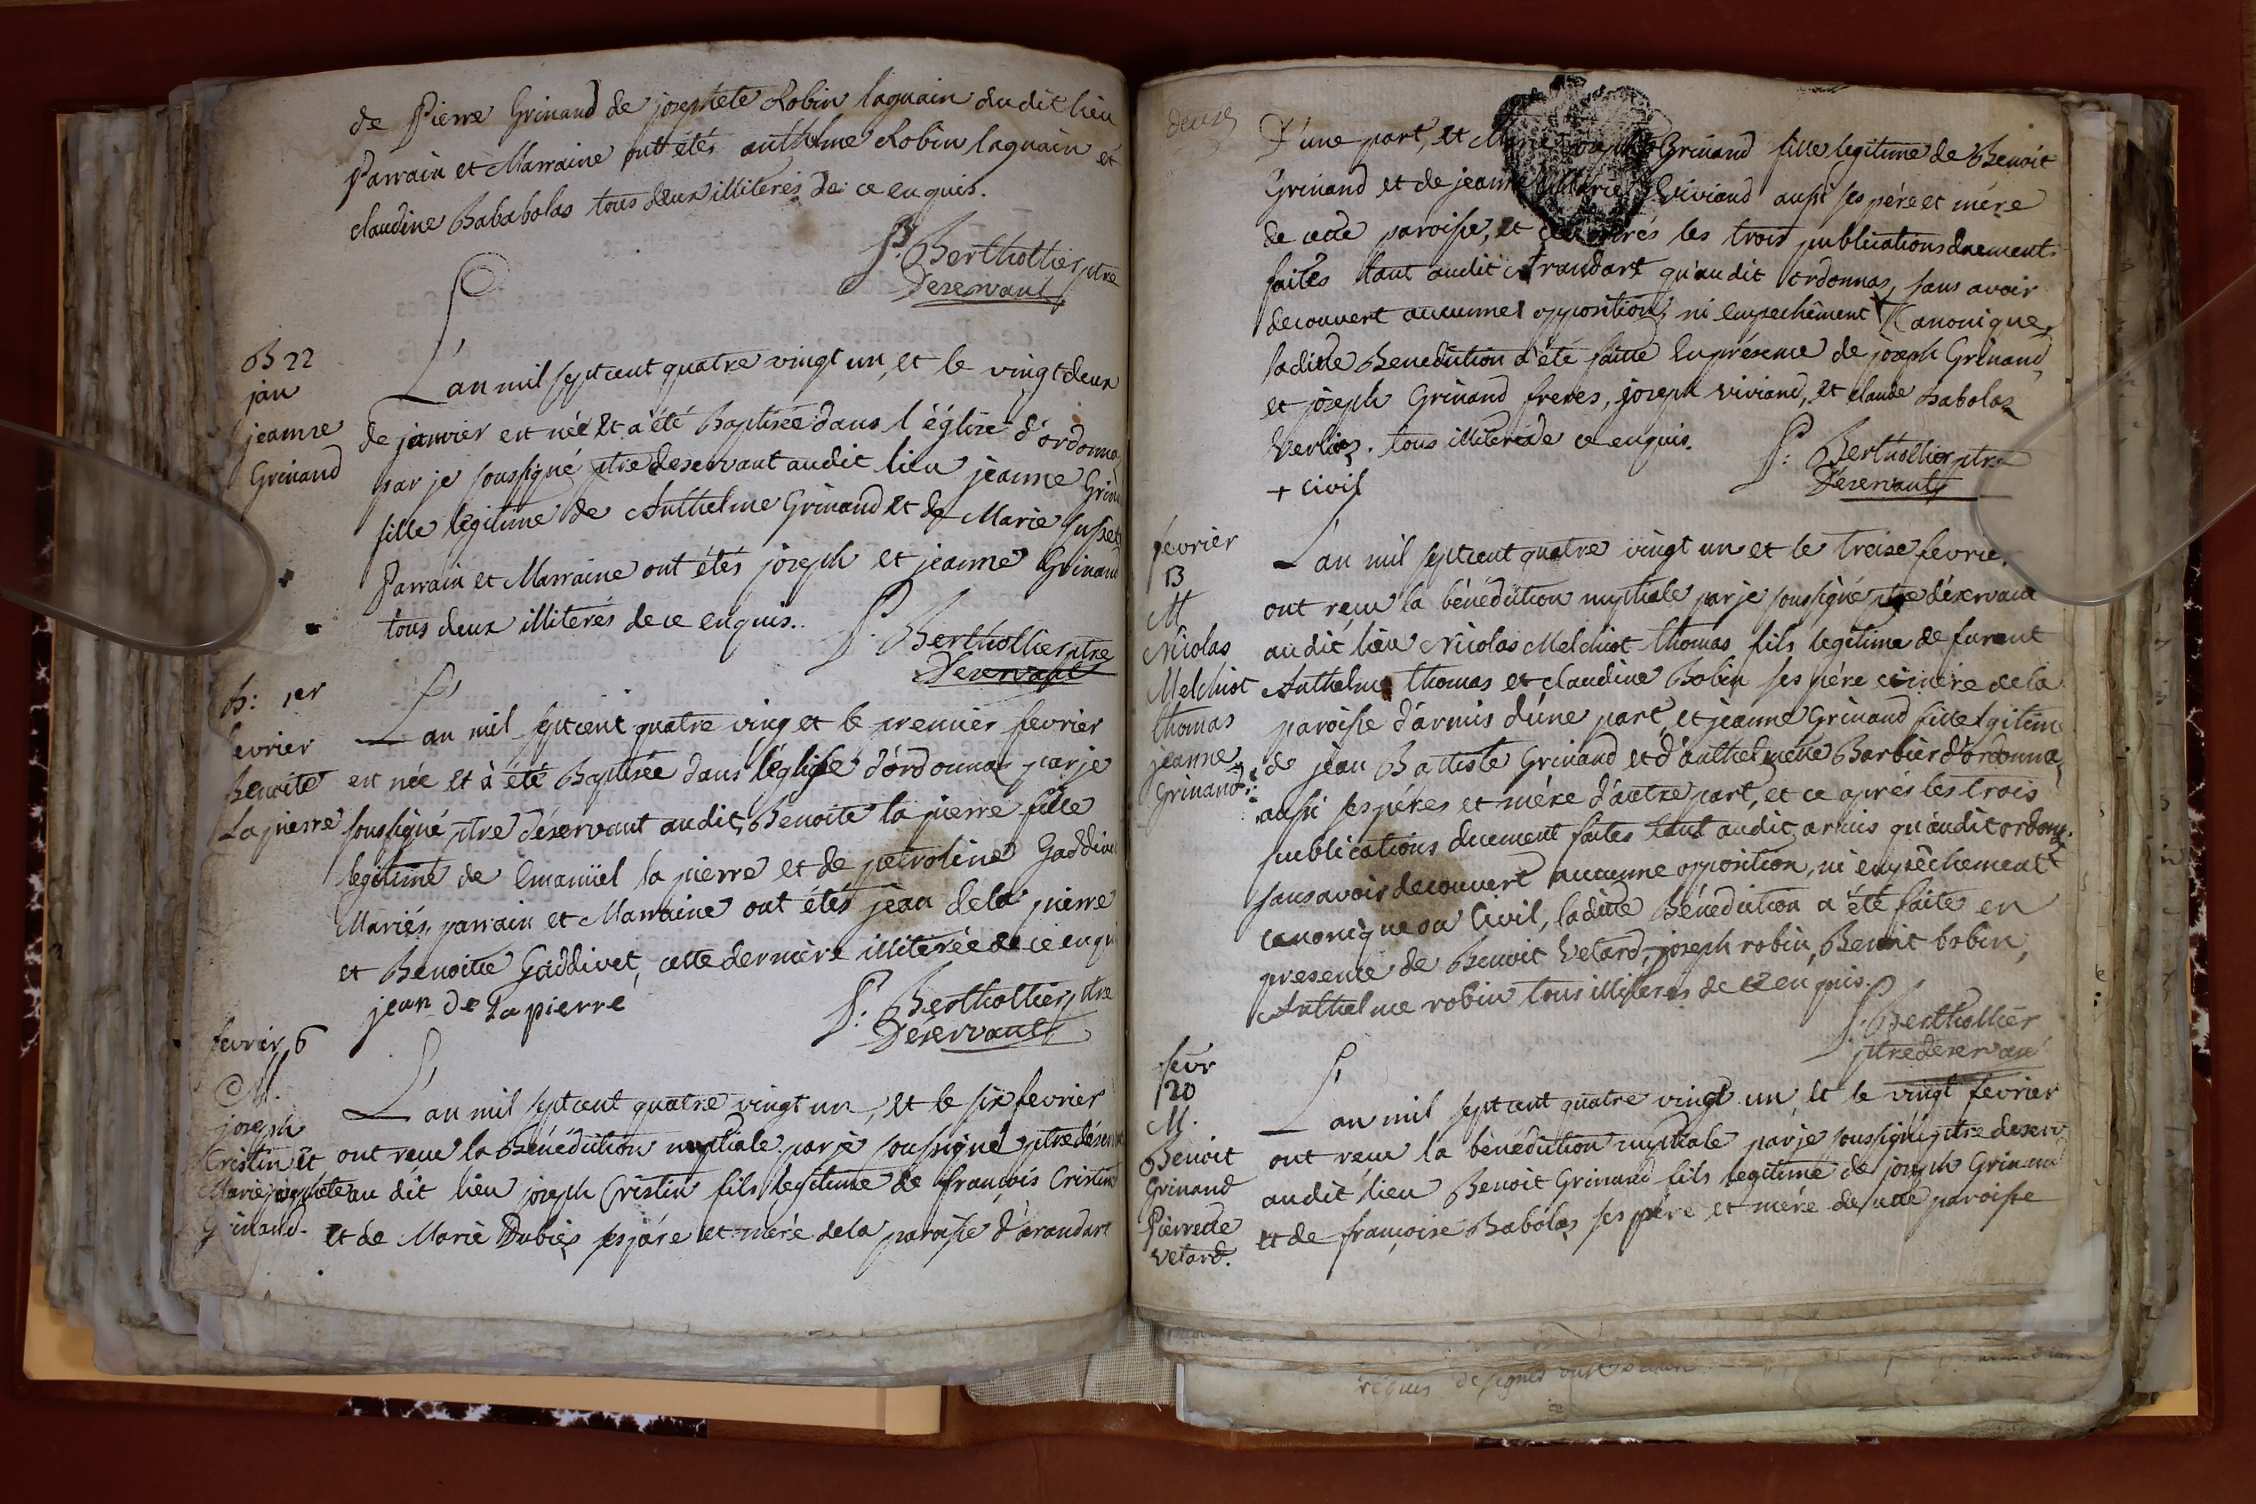 de Pierre Grinand de josephete Robin laguain du dit lieu
Parrain et Marraine ont étés anthelme Robin laguain et
claudine Bababolas tous deux illiterés de ce enquis.
P: Berthollier ptre
Deservant
B 22
jan
jeanne
Grinand
L'an mil sept cent quatre vingt un, et le vingt deux
de janvier est née et a été Baptisée dans l'église d'ordonna
par je soussigné ptre deservant audit lieu jeanne Grin
fille legitime de Anthelme Grinand et de Marie
Parrain et Marraine ont étés joseph et jeanne Grinand
tous deux illiterés de ce enquis..
P: Berthollier ptre
Deservant
B: 1er
fevrier
Benoite
La pierre
L'an mil sept cent quatre ving et le premier fevrier
est née et a été Baptisée dans l'église d'ordonnas par je
soussigné ptre déservant audit, Benoite la pierre fille
legitime de Emanüel la pierre et de petroline Gaddiv
Mariés, parrain et Marraine ont étés jean dela pierre
et Benoitte Gaddivet, cette derniere illiterée de ce enqu
jean de La pierre
P: Berthollier ptre
Déservant
fevrier 6
M.
joseph
Cristin et
Marie josephete
Grinand.
L'an mil sept cent quatre vingt un, et le six fevrier
ont receu la Bénédiction nuptiale par je soussigné ptre déserv
au dit lieu joseph Cristin fils legitime de françois Cristin
et de Marie Dubiés ses pére et mére dela paroisse d'arandart
deuze
D'une part, et Marie josephte Grinand fille legitime de Benoit
Grinand et de jeanne Marie Viviand aussi ses pére et mére
de cette paroisse, et ce aprés les trois publications duement
faites tant audit Arandart qu'au dit ordonnas, sans avoir
decouvert aucunne opposition, ni empechêment Kanonique +
laditte Benediction a été faitte en présence de joseph Grinand
et joseph Grinand freres, joseph viviand, et claude Babolas
Verlioz. tous illiterés de ce enquis.
+ civil
P: Berthollier ptre
Deservant
fevrier
13
M
Nicolas
Melchiot
thomas
jeanne
Grinand
L'an mil sept cent quatre vingt un et le treise fevrier
ont reçu la bénédiction nuptiale par je soussigné ptre déservant
au dit lieu Nicolas Melchiot thomas fils legitime de furent
Anthelme thomas et claudine Bobin ses pére et mére dela
paroisse d'armis d'une part, et jeanne Grinand fille lgitime
de jean Battiste Grinand et d'anthelmette Barbier d'ordonna,
aussi ses péres et mére d'autre part, et ce aprés les trois
publications duement faites tant audit armis qu'audit ordonn.
sans avoir decouvert aucunne opposition, ni empêchement
canonique ou Civil, laditte Bénédiction a été faite en
presence de Benoit Vetard, joseph robin, Benoit bobin,
Anthelme robin tous illiterés de ce enquis.
P: Berthollier
ptre deservant
fevr
20
M.
Benoit
Grinand
Pierrete
Vetard.
L'an mil sept cent quatre vingt un et le vingt fevrier
ont receu la bénédiction nuptiale par je soussigné ptre deserv
audit lieu Benoit Grinand fils legitime de joseph Grinand
et de françoise Babolas ses pére et mére de cette paroisse
requis de signer